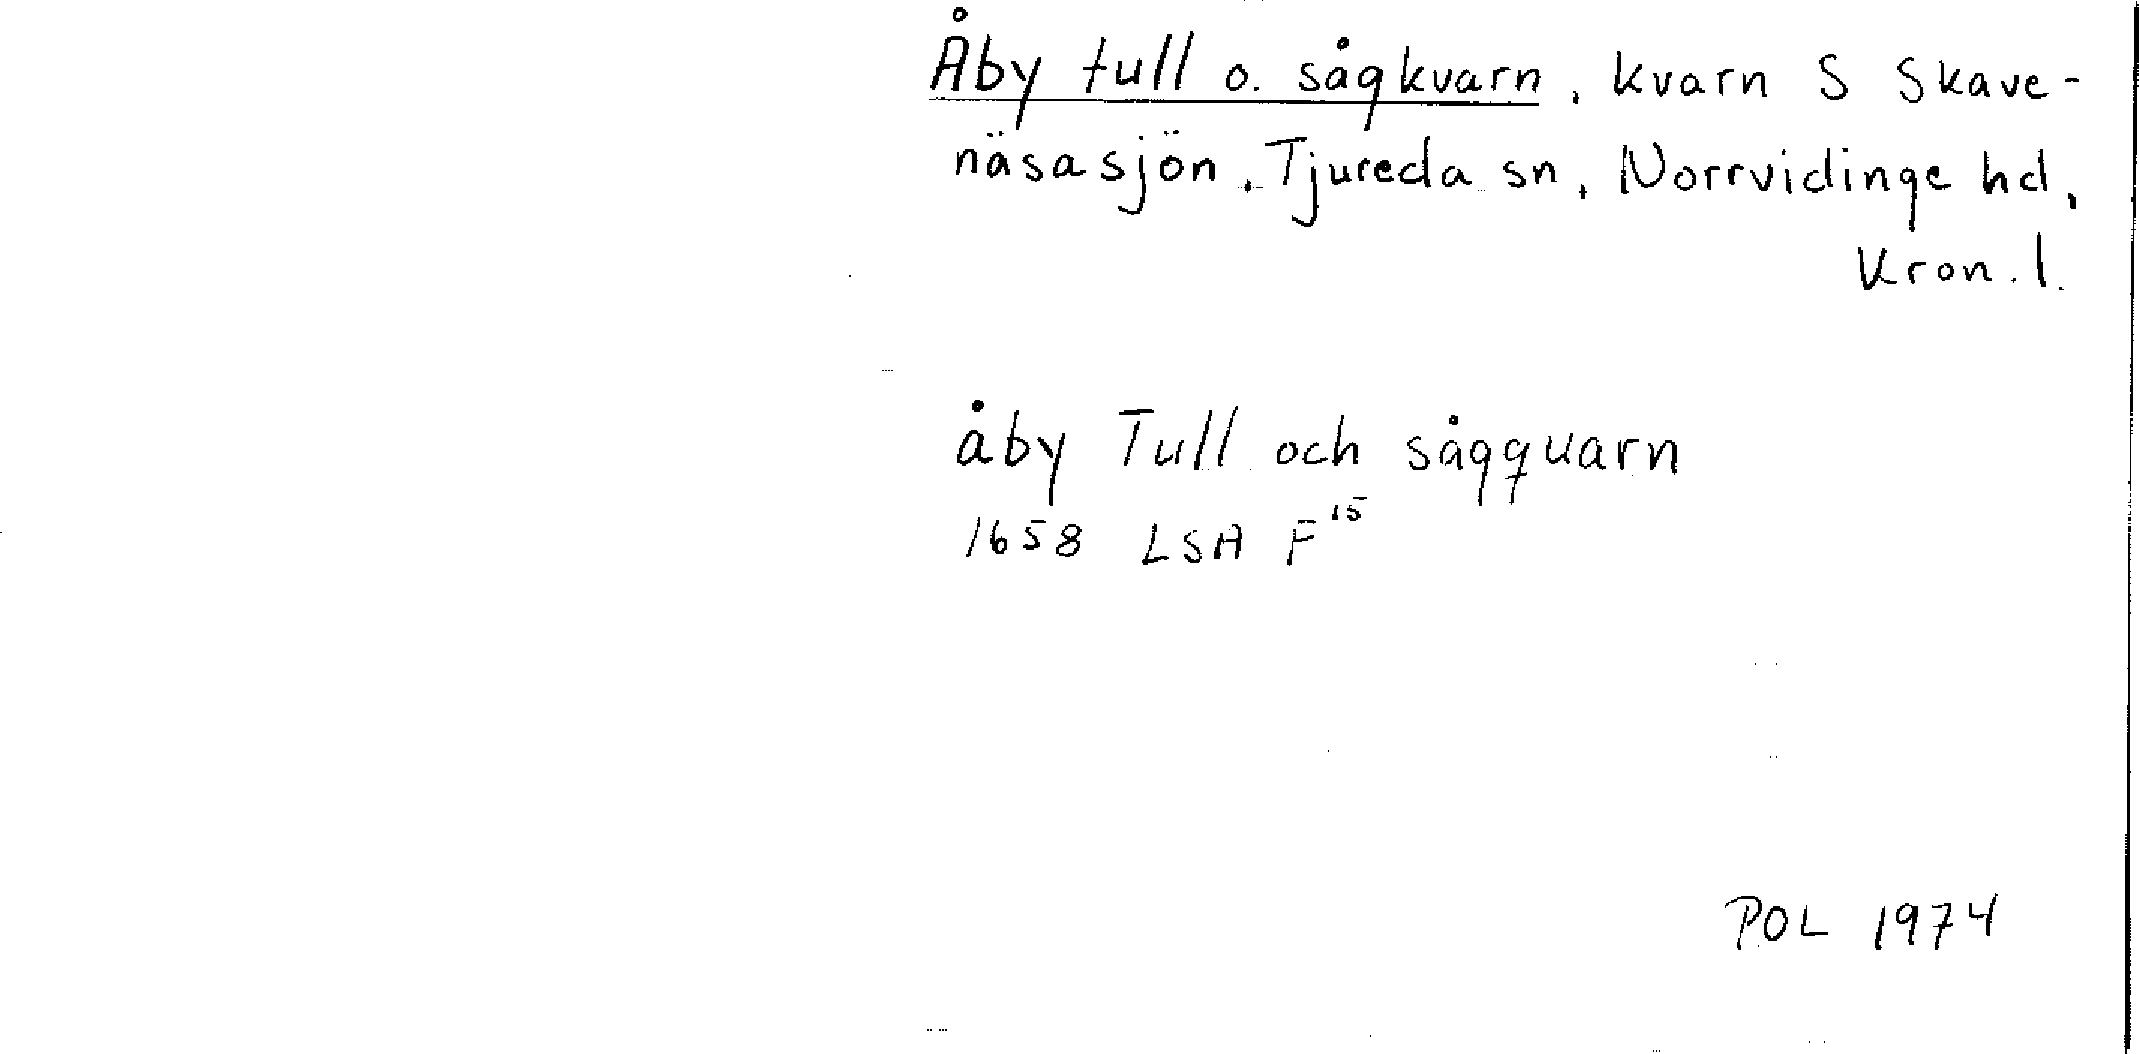 Åby tull o. sågkvarn, kvarn S Skave-
näsasjön, Tjureda sn, Norrvidinge hd,
Kron. l.
åby Tull och sågquarn
1658 LSA F 15
POL 1974